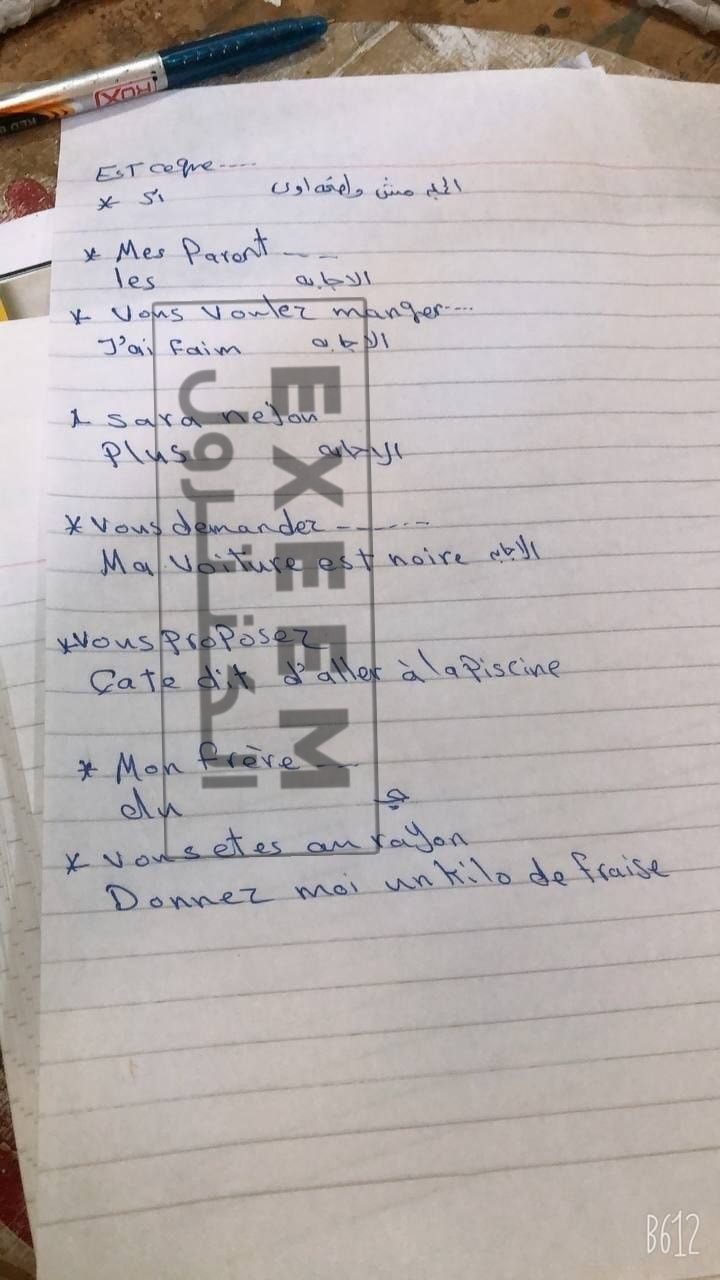 EST ceque....
* Si
* Mes Paront ...
les الاجابه
* Vous voulez manger...
J'ai Faim الاجابه
* sara nejou
Plus الاجابه
* Vous demandez ------
Ma voiture est noire الاجابه
* Vous proposez
Çate dit d'aller à la Piscine
* Mon frère ---
du ج
* vous etes au rayon
Donnez moi un kilo de fraise
EXEEM
اكزيروول
ROX
B612